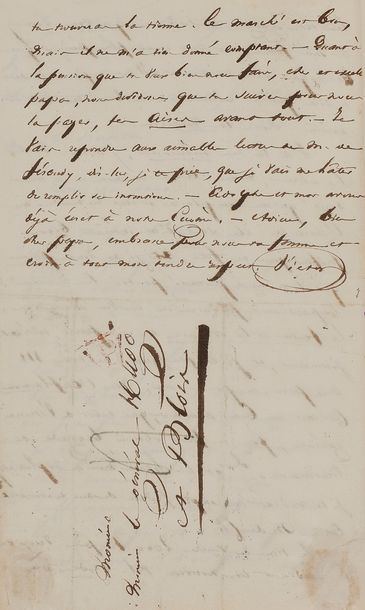 tu trouveras la tienne. Le marché est bon,
mais il ne m'a rien donné comptant. — Quant à
la pension que tu veux bien nous faire, cher et excellent
papa, nous désirons que tu suives pour nous
la payer, tes aises avant tout. — Je
vais répondre aux aimable lettre de m. de
féraudy, dis-lui, je te prie, que je vais me hâter
de remplir ses intentions. — Adolphe et moi avons
déjà écrit à notre Cousin. — Adieu, bien
cher papa, embrasse pour nous ta femme et
crois à tout mon tendre respect. Victor
Monsieur
Monsieur le Général Hugo
à Blois